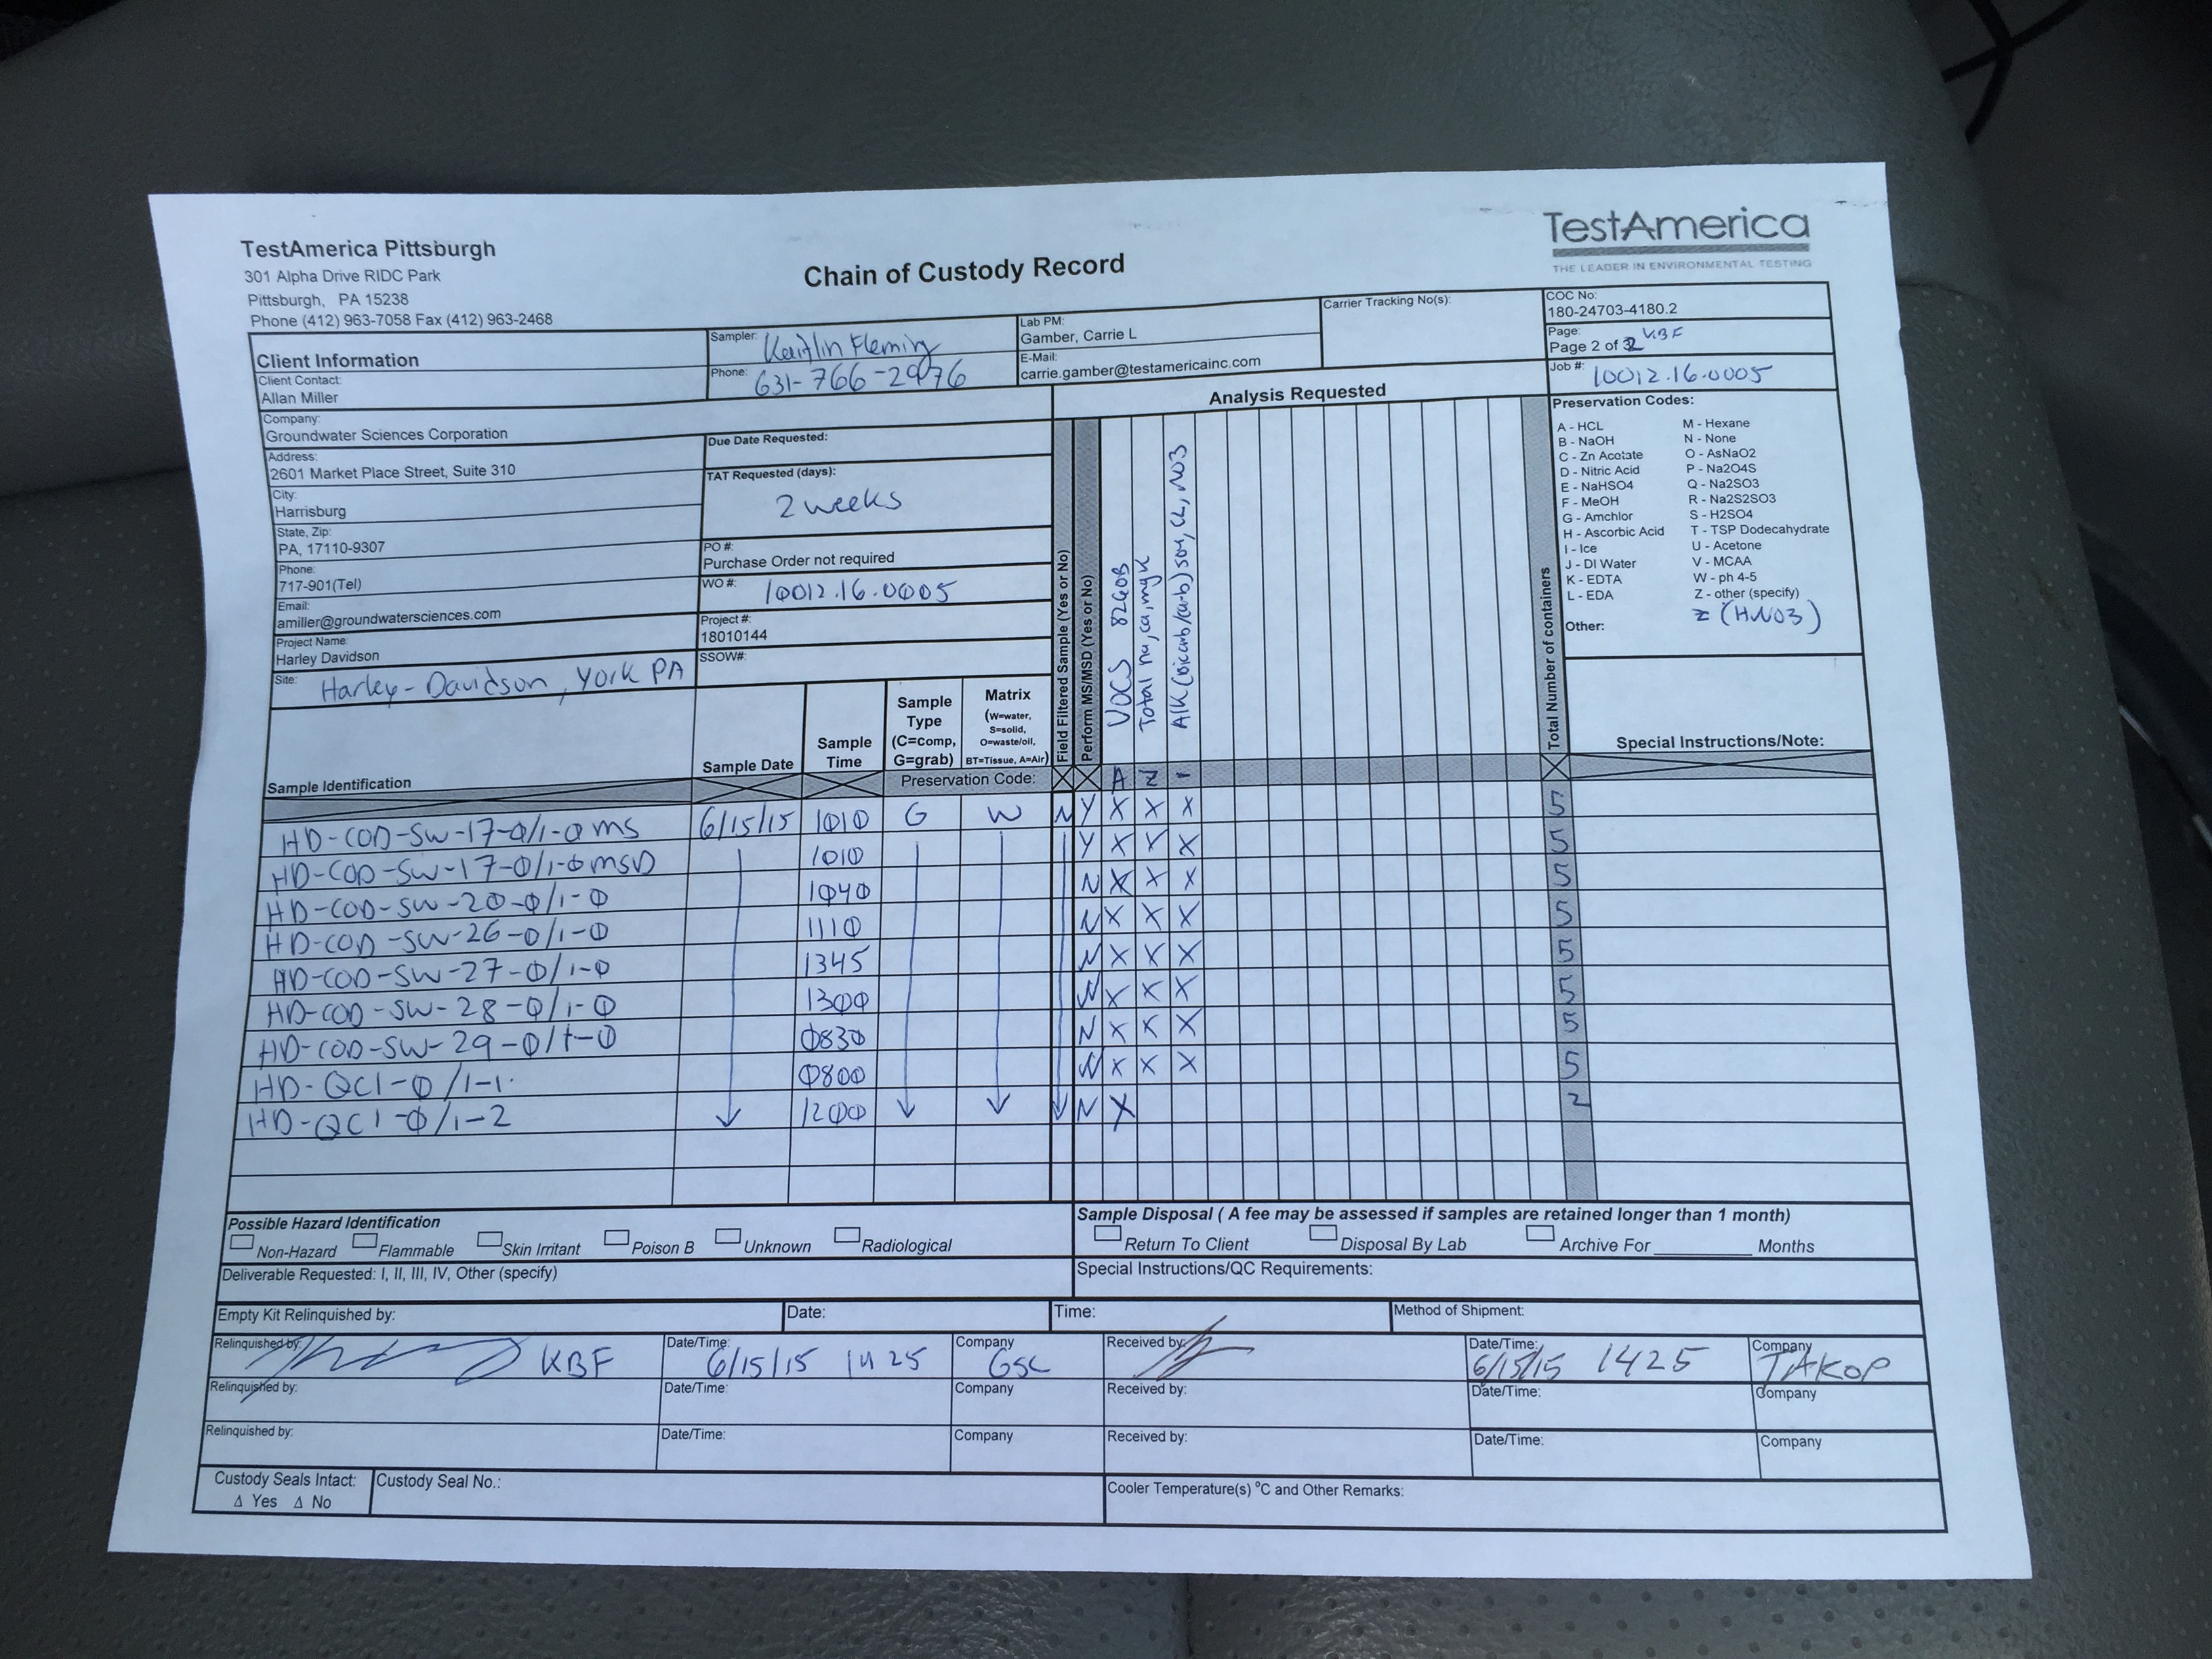 TestAmerica Pittsburgh
301 Alpha Drive RIDC Park
Pittsburgh, PA 15238
Phone (412) 963-7058 Fax (412) 963-2468
Chain of Custody Record
TestAmerica
THE LEADER IN ENVIRONMENTAL TESTING
Client Information
Sampler: Kaitlin Fleming
Phone: 631-766-2976
Lab PM:
Gamber, Carrie L
E-Mail:
carrie.gamber@testamericainc.com
Carrier Tracking No(s):
COC No:
180-24703-4180.2
Page:
Page 2 of 2 KBF
Job #: 10012.16.0005
Client Contact:
Allan Miller
Company:
Groundwater Sciences Corporation
Address:
2601 Market Place Street, Suite 310
City:
Harrisburg
State, Zip:
PA, 17110-9307
Phone:
717-901(Tel)
Email:
amiller@groundwatersciences.com
Project Name:
Harley Davidson
Site: Harley-Davidson, York PA
Due Date Requested:
TAT Requested (days):
2 weeks
PO #:
Purchase Order not required
WO #: 10012.16.0005
Project #:
18010144
SSOW#:
Analysis Requested
Field Filtered Sample (Yes or No)
Perform MS/MSD (Yes or No)
VOCS 8260B
Total na, ca, mg K
Alk (bicarb/carb) SO4, CL, NO3
Total Number of containers
Preservation Codes:
A - HCL M - Hexane
B - NaOH N - None
C - Zn Acetate O - AsNaO2
D - Nitric Acid P - Na2O4S
E - NaHSO4 Q - Na2SO3
F - MeOH R - Na2S2SO3
G - Amchlor S - H2SO4
H - Ascorbic Acid T - TSP Dodecahydrate
I - Ice U - Acetone
J - DI Water V - MCAA
K - EDTA W - ph 4-5
L - EDA Z - other (specify)
Other: Z (HNO3)
Special Instructions/Note:
Sample Identification
Sample Date
Sample Time
Sample Type (C=comp, G=grab)
Matrix (W=water, S=solid, O=waste/oil, BT=Tissue, A=Air)
Preservation Code: X X A Z - X
HD-COD-SW-17-0/1-0 MS 6/15/15 1010 G W N Y X X X 5
HD-COD-SW-17-0/1-0 MSD 1010 Y X X X 5
HD-COD-SW-20-0/1-0 1040 N X X X 5
HD-COD-SW-26-0/1-0 1110 N X X X 5
HD-COD-SW-27-0/1-0 1345 N X X X 5
HD-COD-SW-28-0/1-0 1300 N X X X 5
HD-COD-SW-29-0/1-0 0830 N X X X 5
HD-QC1-0/1-1 0800 N X X X 5
HD-QC1-0/1-2 1200 N X 2
Possible Hazard Identification
Non-Hazard Flammable Skin Irritant Poison B Unknown Radiological
Sample Disposal ( A fee may be assessed if samples are retained longer than 1 month)
Return To Client Disposal By Lab Archive For ________ Months
Deliverable Requested: I, II, III, IV, Other (specify)
Special Instructions/QC Requirements:
Empty Kit Relinquished by:
Date:
Time:
Method of Shipment:
Relinquished by: KBF Date/Time: 6/15/15 1425 Company GSC Received by: Date/Time: 6/15/15 1425 Company TAKOP
Relinquished by: Date/Time: Company Received by: Date/Time: Company
Relinquished by: Date/Time: Company Received by: Date/Time: Company
Custody Seals Intact:
Δ Yes Δ No
Custody Seal No.:
Cooler Temperature(s) °C and Other Remarks: